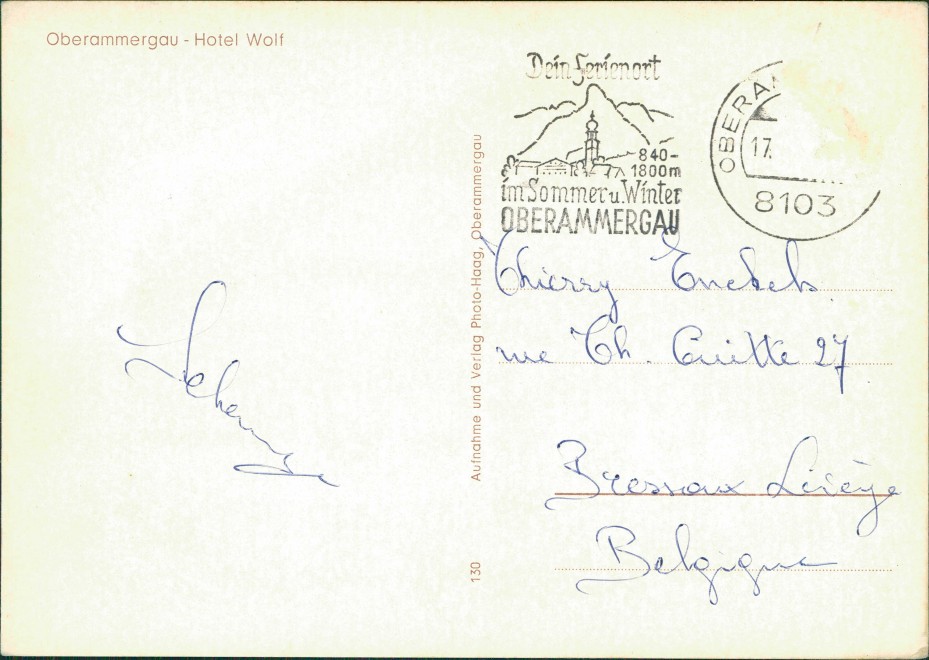 Oberammergau - Hotel Wolf
Dein Ferienort
840-
1800m
im Sommer u. Winter
OBERAMMERGAU
OBERAM
17.
8103
Aufnahme und Verlag Photo-Haag, Oberammergau
130
Thierry
rue Th. Cuitte 27
Bressoux Liège
Belgique